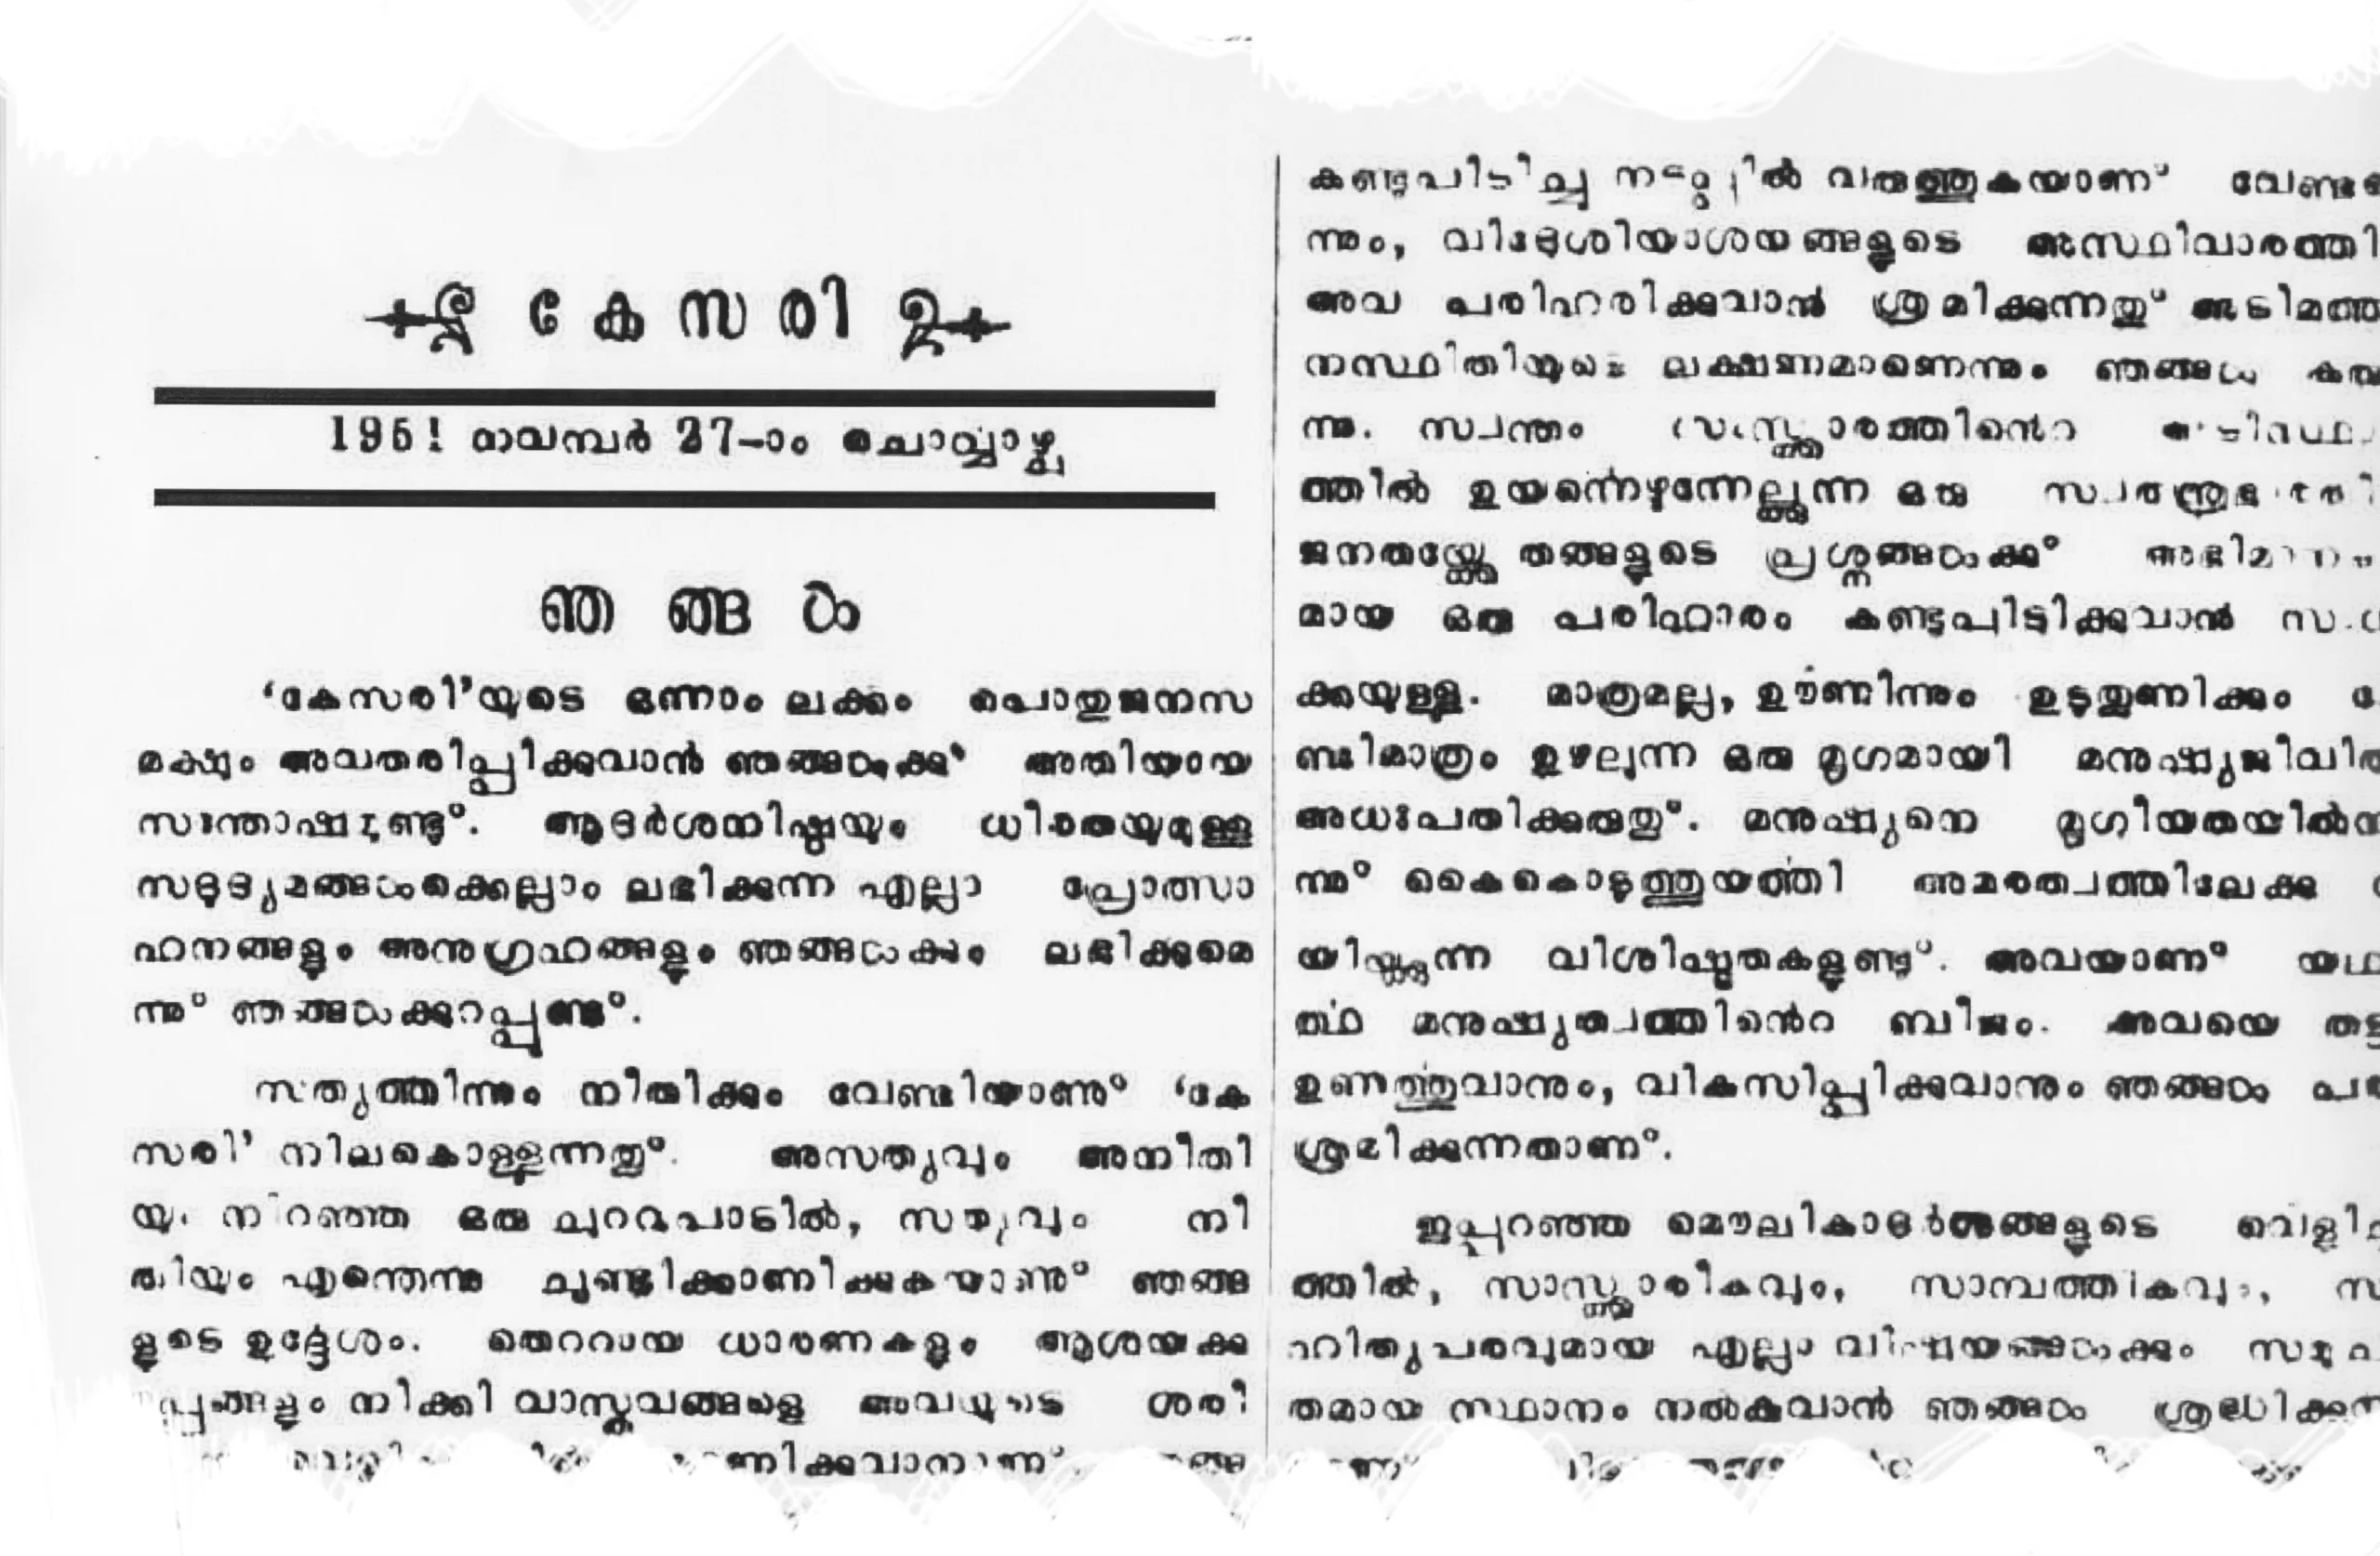 കേസരി
1951 നവമ്പർ 27-ാം ചൊവ്വാഴ്ച
ഞങ്ങൾ
‘കേസരി’യുടെ ഒന്നാം ലക്കം പൊതുജനസ
മക്ഷം അവതരിപ്പിക്കുവാൻ ഞങ്ങൾക്കു് അതിയായ
സന്തോഷമുണ്ടു്. ആദർശനിഷ്ഠയും ധീരതയുമുള്ള
സദുദ്യമങ്ങൾക്കെല്ലാം ലഭിക്കുന്ന എല്ലാ പ്രോത്സാ
ഹനങ്ങളും അനുഗ്രഹങ്ങളും ഞങ്ങൾക്കും ലഭിക്കുമെ
ന്നു് ഞങ്ങൾക്കുറപ്പുണ്ടു്.
സത്യത്തിന്നും നീതിക്കും വേണ്ടിയാണു് ‘കേ
സരി’ നിലകൊള്ളുന്നതു്. അസത്യവും അനീതി
യും നിറഞ്ഞ ഒരു ചുറ്റുപാടിൽ, സത്യവും നീ
തിയും എന്തെന്നു ചൂണ്ടിക്കാണിക്കുകയാണു് ഞങ്ങ
ളുടെ ഉദ്ദേശം. തെററായ ധാരണകളും ആശയക്കു
നീക്കി വാസ്തവങ്ങളെ അവയുടെ ശരി
കണ്ടുപിടിച്ചു വരുത്തുകയാണ് വേണ്ടതെ
ന്നും, വിദേശീയാശയങ്ങളുടെ അസ്ഥിവാരത്തി
അവ പരിഹരിക്കുവാൻ ശ്രമിക്കുന്നതു് അടിമത്ത
നസ്ഥിതിയുടെ ലക്ഷണമാണെന്നും ഞങ്ങൾ കരു
ന്നു. സ്വന്തം സംസ്ക്കാരത്തിന്റെ
ത്തിൽ ഉയർന്നെഴുന്നേല്ക്കുന്ന ഒരു
ജനതയ്ക്കേ തങ്ങളുടെ പ്രശ്നങ്ങൾക്കു് അഭിമാന
മായ ഒരു പരിഹാരം കണ്ടുപിടിക്കുവാൻ
ക്കയുള്ളൂ. മാത്രമല്ല, ഊണിന്നും ഉടുതുണിക്കും വേ
ണ്ടിമാത്രം ഉഴലുന്ന ഒരു മൃഗമായി മനുഷ്യജീവിത
അധഃപതിക്കരുതു്. മനുഷ്യനെ മൃഗീയതയിൽനി
ന്നു് കൈകൊടുത്തുയർത്തി അമരത്വത്തിലേക്കു
യിക്കുന്ന വിശിഷ്ടതകളുണ്ടു്. അവയാണു് യഥാ
ർത്ഥ മനുഷ്യത്വത്തിന്റെ ബീജം. അവയെ തട്ടി
ഉണർത്തുവാനും, വികസിപ്പിക്കുവാനും ഞങ്ങൾ
ശ്രമിക്കുന്നതാണു്.
ഇപ്പറഞ്ഞ മൌലികാദർശങ്ങളുടെ വെളിച്ച
ത്തിൽ, സാംസ്ക്കാരികവും, സാമ്പത്തികവും, സാ
ഹിത്യപരവുമായ എല്ലാ വിഷയങ്ങൾക്കും സമുചി
തമായ സ്ഥാനം നൽകുവാൻ ഞങ്ങൾ ശ്രദ്ധിക്കുന്ന